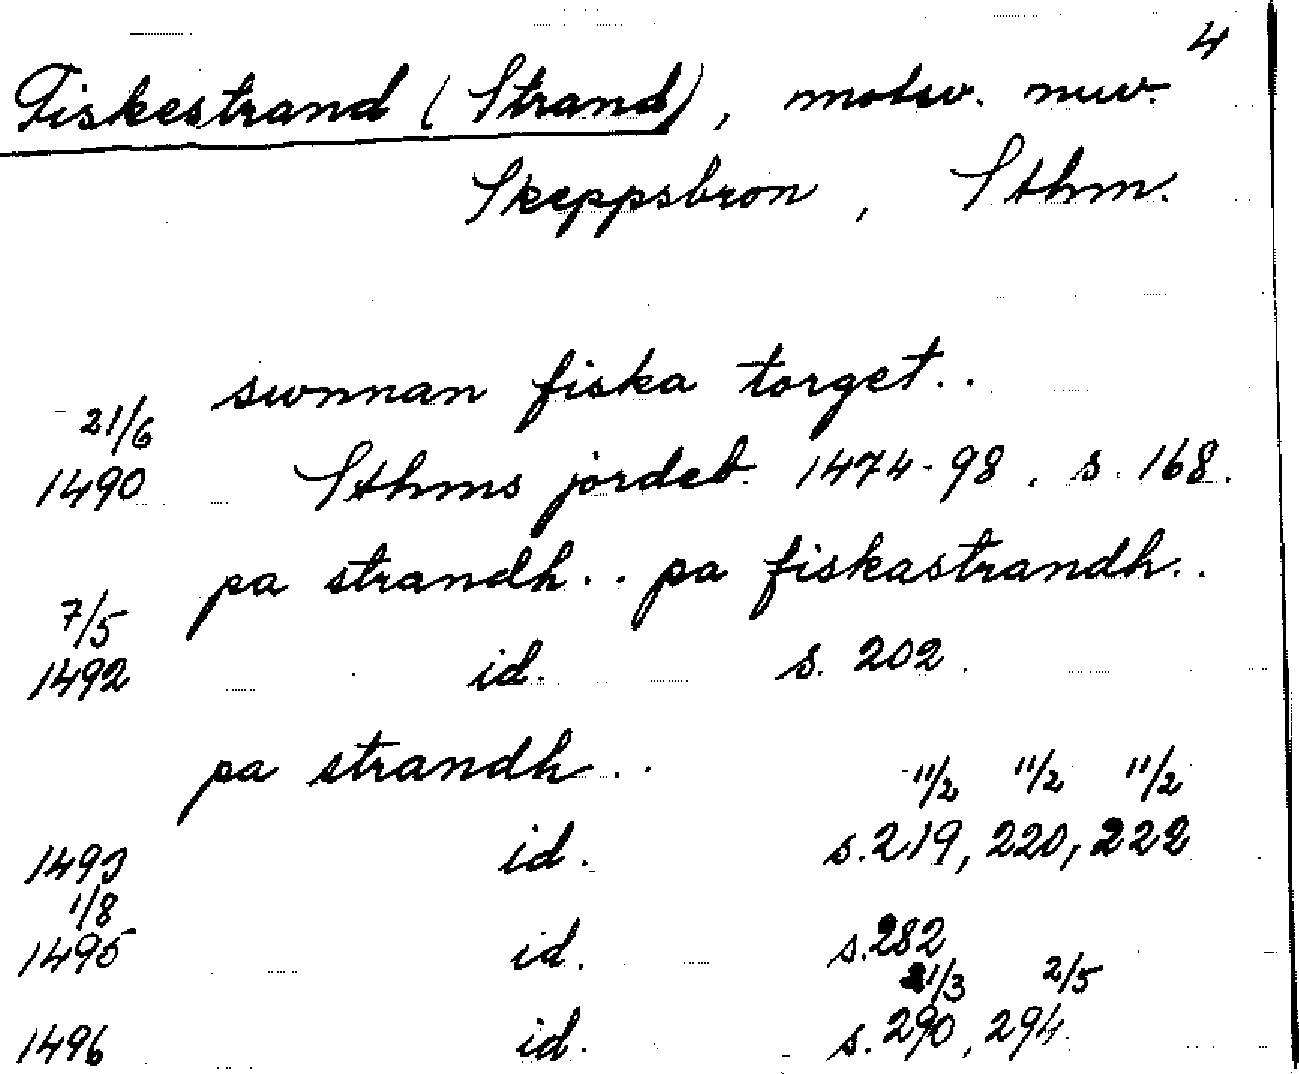 4
Fiskestrand (Strand), motsv. nuv.
Skeppsbron, Sthm.
swnnan fiska torget..
21/6
1490 Sthms jordeb. 1474-98. s. 168.
pa strandh.. pa fiskastrandh..
7/5
1492 id. s. 202.
pa strandh..
11/2 11/2 11/2
1493 id. s. 219, 220, 222
1/8
1495 id. s. 282
21/3 2/5
1496 id. s. 290, 294